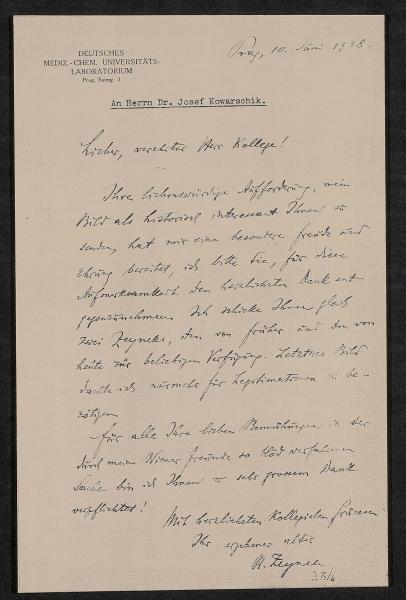 DEUTSCHES
MEDIZ.-CHEM. UNIVERSITÄTS-
LABORATORIUM
Prag, 10. Juni 1938.
An Herrn Dr. Josef Kowarschik.
Lieber, verehrter Herr Kollege!
Ihre liebenswürdige Aufforderung, mein
Bild als historisch interessant Ihnen zu
senden, hat mir eine besondere Freude und
Ehrung bereitet, ich bitte Sie, für diese
Aufmerksamkeit den herzlichsten Dank ent-
gegenzunehmen. Ich schicke Ihnen gleich
zwei Zeyneks, den von früher und den von
heute zur beliebigen Verfügung. Letzteres Bild
dachte ich nunmehr für Legitimationen zu be-
nötigen.
Für alle Ihre lieben Bemühungen in der
durch meine Wiener Freunde so verfahrenen
Sache bin ich Ihnen zu sehr grossem Dank
verpflichtet!
Mit herzlichsten kollegialen Grüssen
Ihr ergebener
R. Zeynek